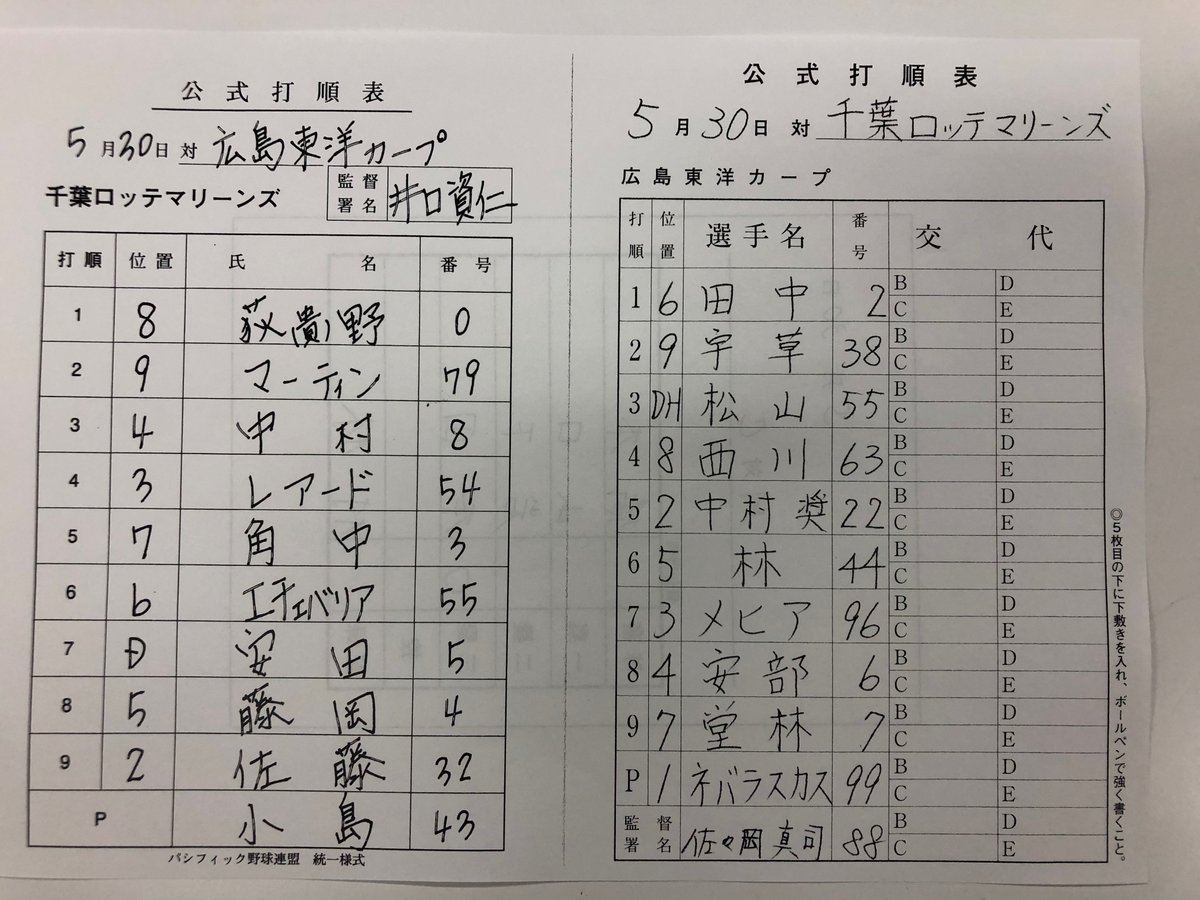 公式打順表
5月30日 対 広島東洋カープ
千葉ロッテマリーンズ 監督署名 井口資仁
打順 位置 氏名 番号
1 8 荻(貴)野 0
2 9 マーティン 79
3 4 中村 8
4 3 レアード 54
5 7 角中 3
6 6 エチェバリア 55
7 D 安田 5
8 5 藤岡 4
9 2 佐藤 32
P 小島 43
パシフィック野球連盟 統一様式
公式打順表
5月30日 対 千葉ロッテマリーンズ
広島東洋カープ
打順 位置 選手名 番号 交代
1 6 田中 2 B C D E
2 9 宇草 38 B C D E
3 DH 松山 55 B C D E
4 8 西川 63 B C D E
5 2 中村奨 22 B C D E
6 5 林 44 B C D E
7 3 メヒア 96 B C D E
8 4 安部 6 B C D E
9 7 堂林 7 B C D E
P 1 ネバラスカス 99 B C D E
監督署名 佐々岡真司 88 B C D E
◎5枚目の下に下敷きを入れ、ボールペンで強く書くこと。